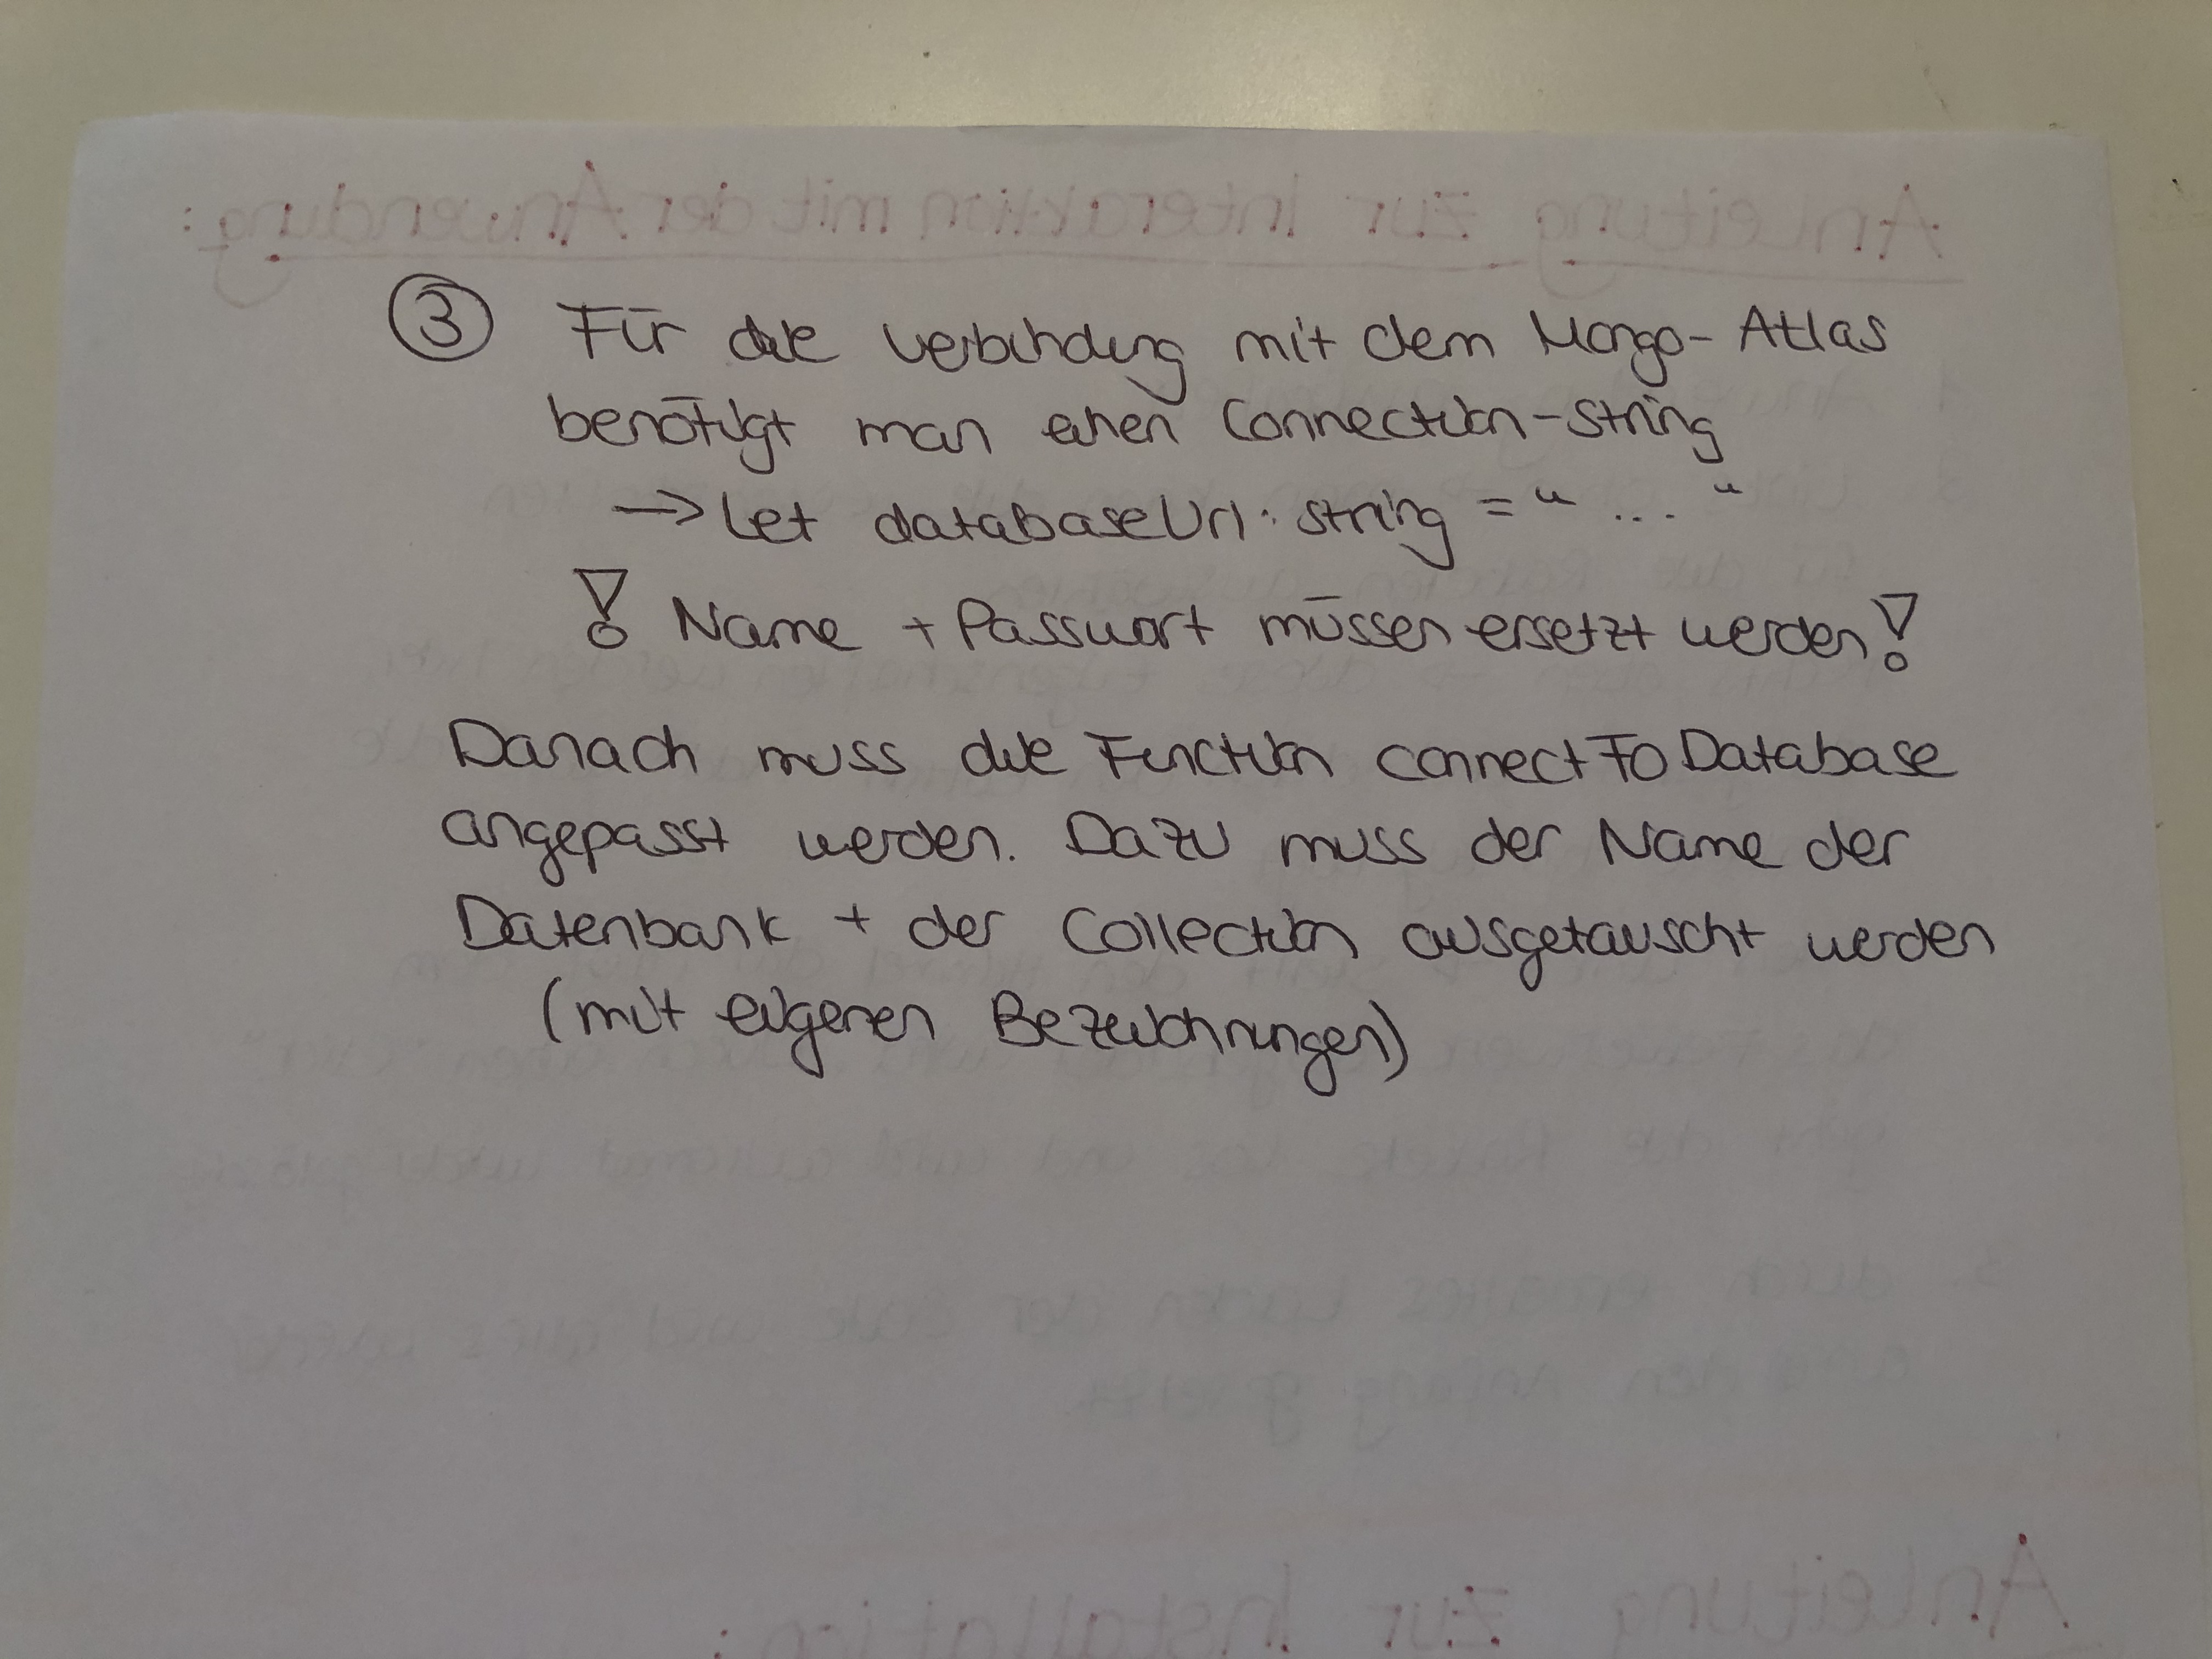 ③ Für die Verbindung mit dem Mongo-Atlas
benötigt man einen Connection-string
→ let databaseUrl : string = " ... "
! Name + Passwort müssen ersetzt werden !
Danach muss die Function connectToDatabase
angepasst werden. Dazu muss der Name der
Datenbank + der Collection ausgetauscht werden
(mit eigenen Bezeichnungen)